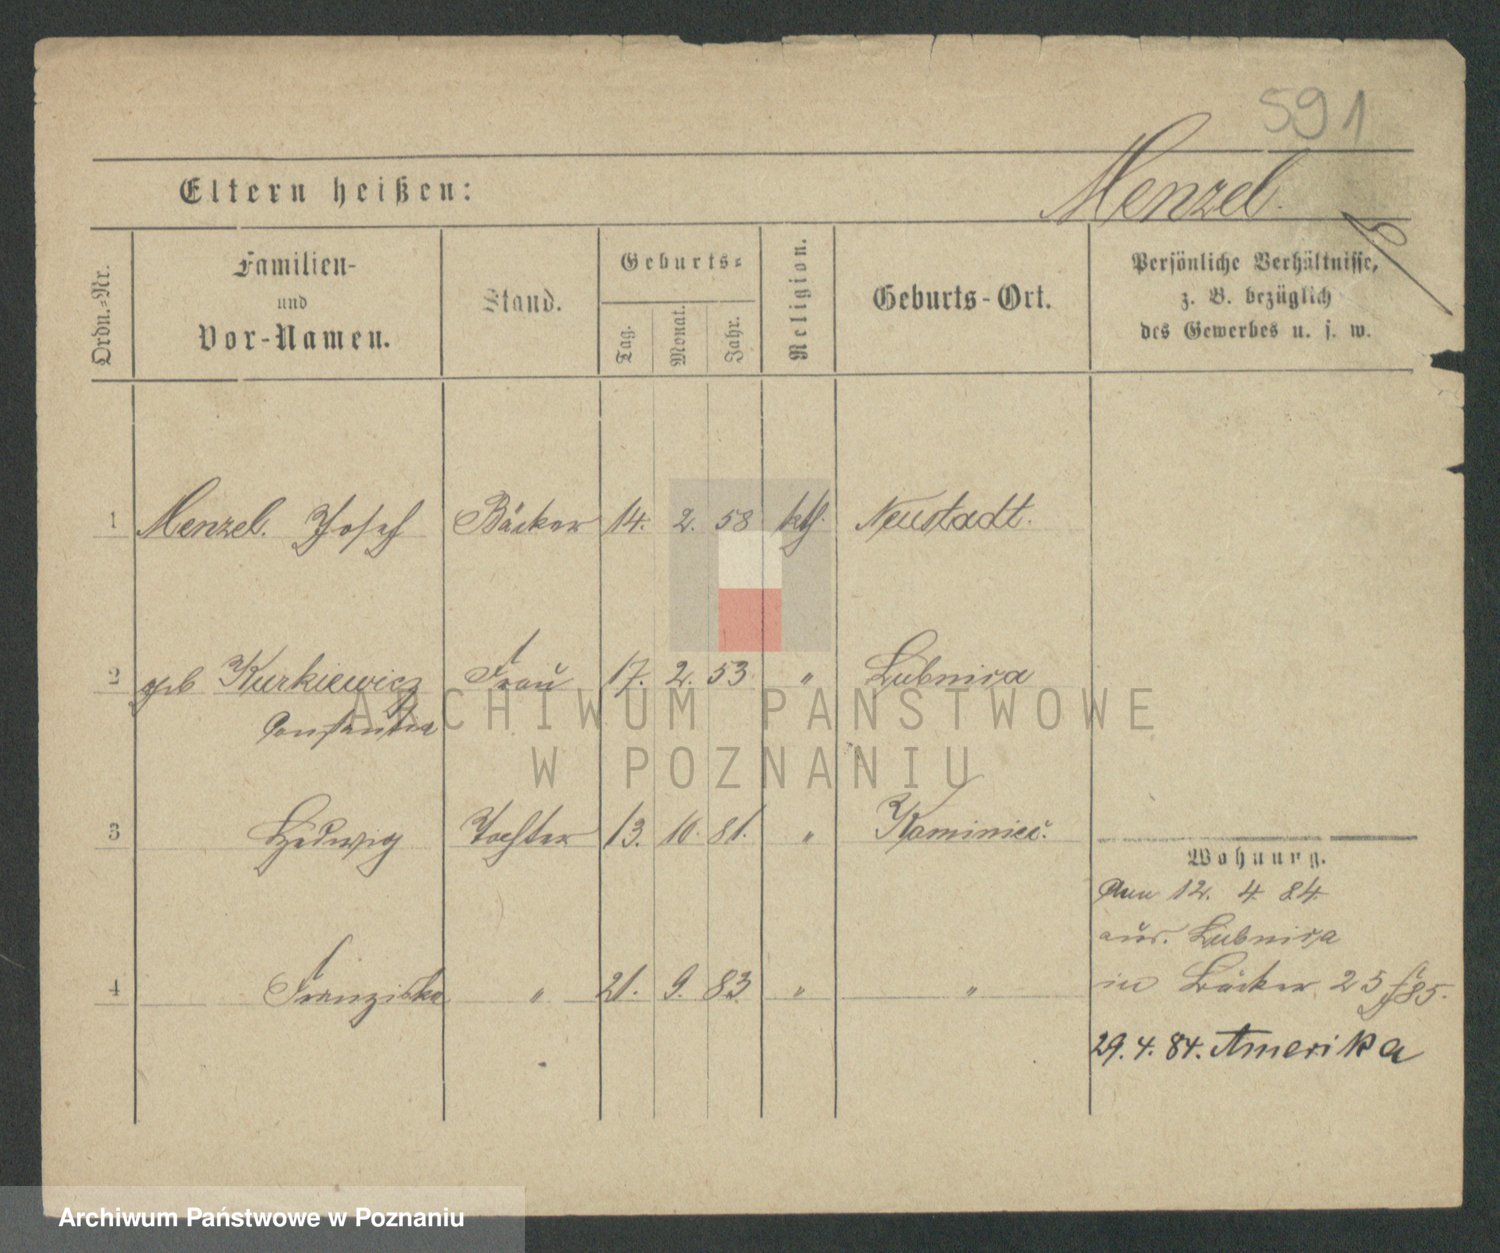 591
Eltern heißen:
Menzel.
Ordn.-Nr.
Familien-
und
Vor-Namen.
Stand.
Geburts-
Tag.
Monat.
Jahr.
Religion.
Geburts-Ort.
Persönliche Verhältnisse,
z. B. bezüglich
des Gewerbes u. s. w.
1 Menzel. Josef Bäcker 14. 2. 58 kth. Neustadt.
2 geb Kurkiewicz Frau 17. 2. 53 " Lubnica
Constantia
3 Hedwig Tochter 13. 10. 81. " Kaminiec.
Wohnung.
12. 4 84.
aus. Lubnica
4 Franziska " 21. 9. 83 " "
in Bäcker 25 85.
29. 4. 84. Amerika
ARCHIWUM PAŃSTWOWE
W POZNANIU
Archiwum Państwowe w Poznaniu